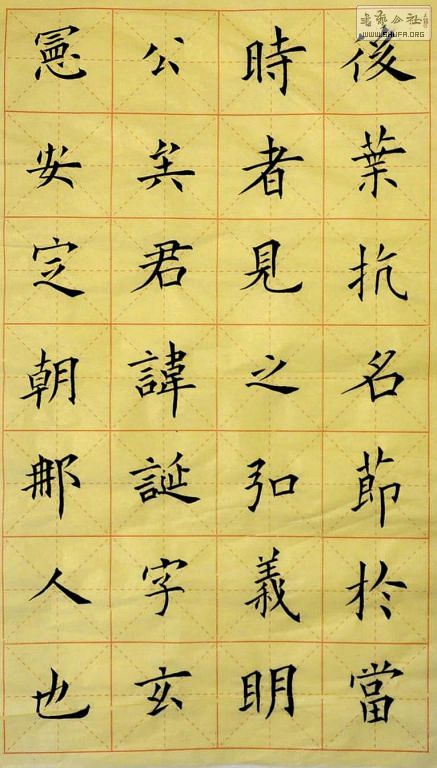 書藝公社
WWW.SHUFA.ORG
後葉抗名節於當
時者見之弘義明
公矣君諱誕字玄
憲安定朝那人也